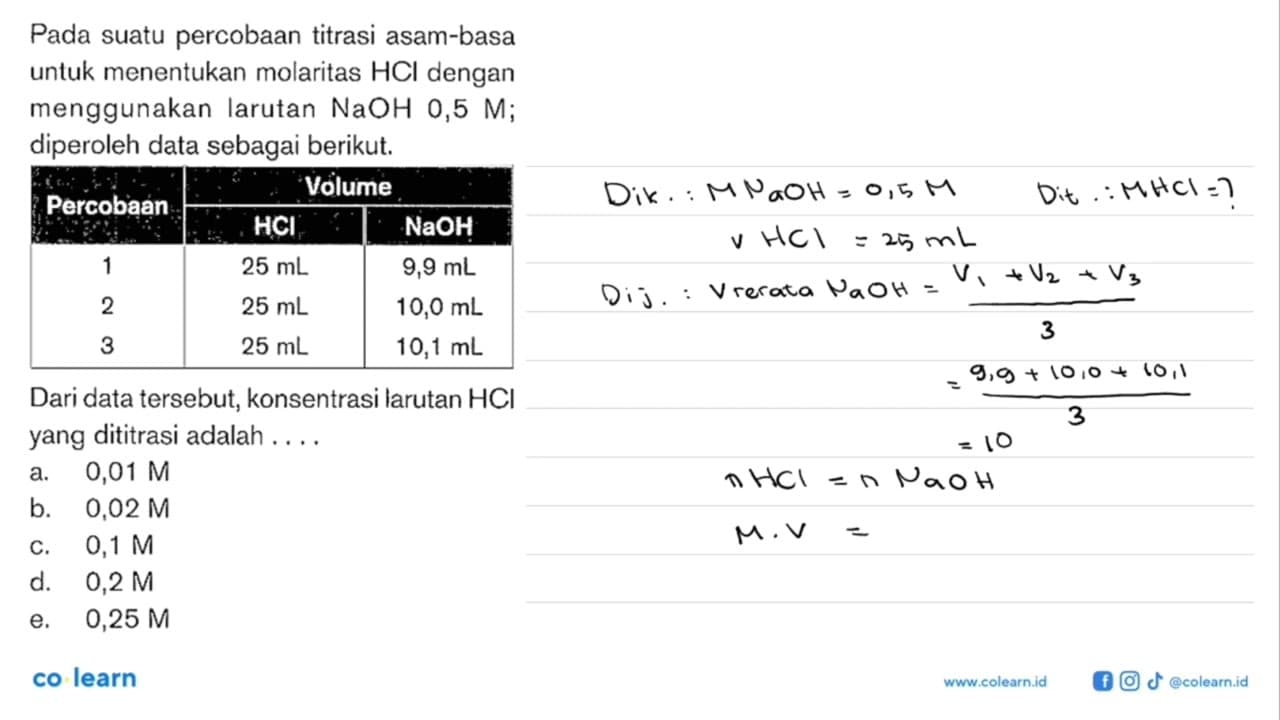 Pada suatu percobaan titrasi asam-basa
untuk menentukan molaritas HCl dengan
menggunakan larutan NaOH 0,5 M;
diperoleh data sebagai berikut.
Percobaan Volume
HCl NaOH
1 25 mL 9,9 mL
2 25 mL 10,0 mL
3 25 mL 10,1 mL
Dari data tersebut, konsentrasi larutan HCl
yang dititrasi adalah . . . .
a. 0,01 M
b. 0,02 M
c. 0,1 M
d. 0,2 M
e. 0,25 M
Dik. : M NaOH = 0,5 M Dit. : M HCl = ?
V HCl = 25 mL
Dij. : V rerata NaOH = V₁ + V₂ + V₃
3
= 9,9 + 10,0 + 10,1
3
= 10
n HCl = n NaOH
M . V =
co learn
www.colearn.id @colearn.id